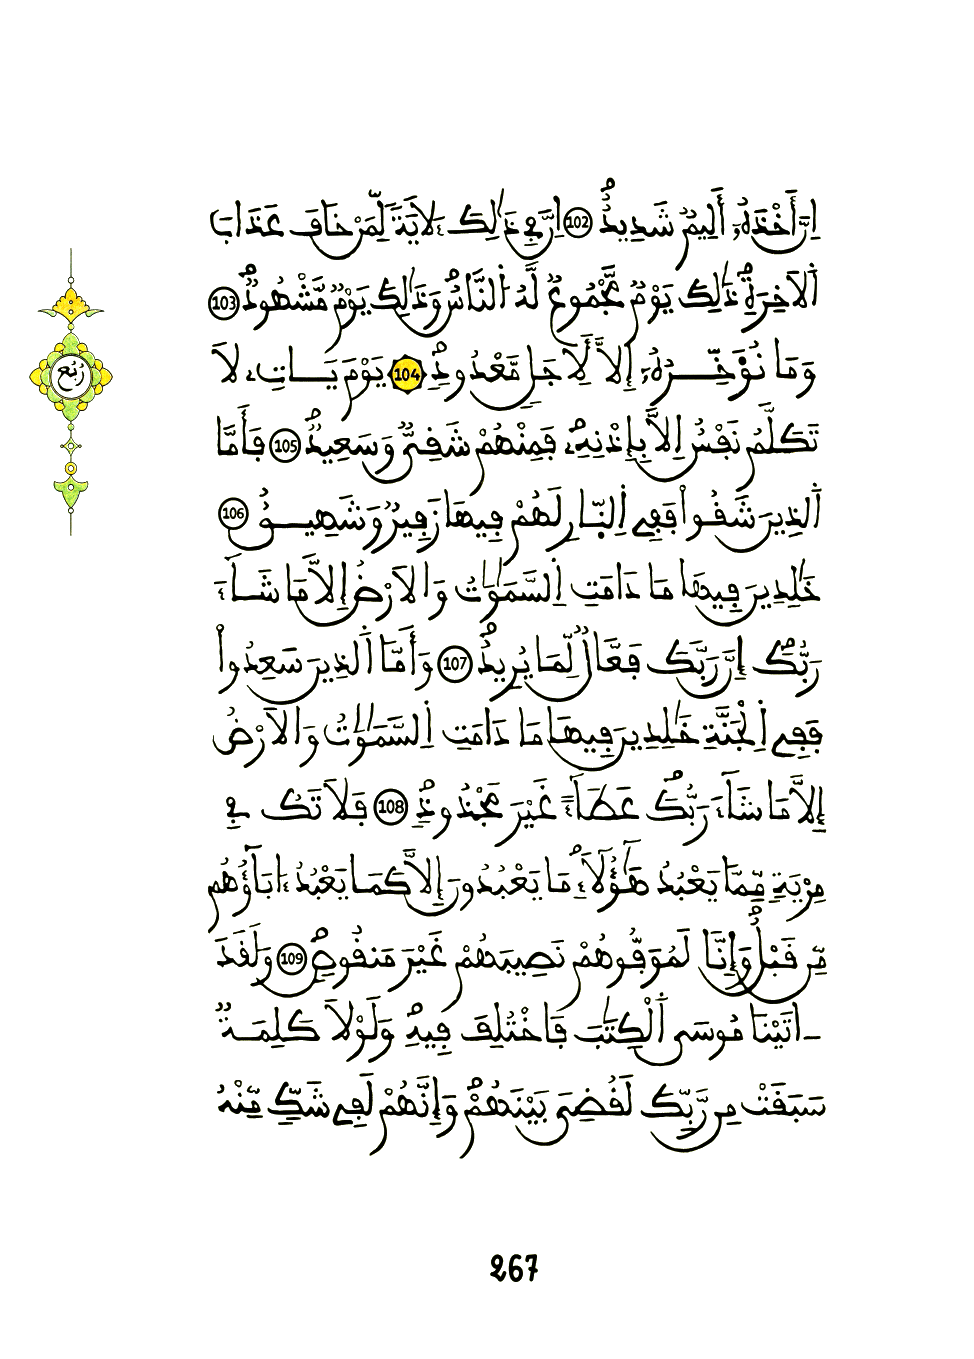 إِنَّ أَخْذَهُۥٓ أَلِيمٞ شَدِيدٌۖ 102 اِنَّ فِے ذَٰلِكَ ءَلَايَةٗ لِّمَنْ خَافَ عَذَابَ
اَ۬لَاخِرَةِۖ ذَٰلِكَ يَوْمٞ مَّجْمُوعٞ لَّهُ اُ۬لنَّاسُ وَذَٰلِكَ يَوْمٞ مَّشْهُودٞۖ 103
وَمَا نُؤَخِّرُهُۥٓ إِلَّا لَأَجَلٖ مَّعْدُودٖۖ 104 يَوْمَ يَاتِۦ لَا
تَكَلَّمُ نَفْسٌ اِلَّا بِإِذْنِهِۦۖ فَمِنْهُمْ شَقِيّٞ وَسَعِيدٞۖ 105 فَأَمَّا
اَ۬لذِينَ شَقُواْ فَفِے اِ۬لنّ۪ارِ لَهُمْ فِيهَا زَفِيرٞ وَشَهِيقٌ 106
خَٰلِدِينَ فِيهَا مَا دَامَتِ اِ۬لسَّمَٰوَٰتُ وَالَارْضُ إِلَّا مَا شَآءَ
رَبُّكَۖ إِنَّ رَبَّكَ فَعَّالٞ لِّمَا يُرِيدُۖ 107 وَأَمَّا اَ۬لذِينَ سَعِدُواْ
فَفِے اِ۬لْجَنَّةِ خَٰلِدِينَ فِيهَا مَا دَامَتِ اِ۬لسَّمَٰوَٰتُ وَالَارْضُ
إِلَّا مَا شَآءَ رَبُّكَۖ عَطَآءً غَيْرَ مَجْذُوذٖۖ 108 فَلَا تَكُ فِے
مِرْيَةٖ مِّمَّا يَعْبُدُ هَٰٓؤُلَآءِۖ مَا يَعْبُدُونَ إِلَّا كَمَا يَعْبُدُ ءَابَآؤُهُم
مِّن قَبْلُۖ وَإِنَّا لَمُوَفُّوهُمْ نَصِيبَهُمْ غَيْرَ مَنقُوصٖۖ 109 وَلَقَدَ
ـ اتَيْنَا مُوسَى اَ۬لْكِتَٰبَ فَاخْتُلِفَ فِيهِۖ وَلَوْلَا كَلِمَةٞ
سَبَقَتْ مِن رَّبِّكَ لَقُضِيَ بَيْنَهُمْۖ وَإِنَّهُمْ لَفِے شَكّٖ مِّنْهُ
رُبُع
267